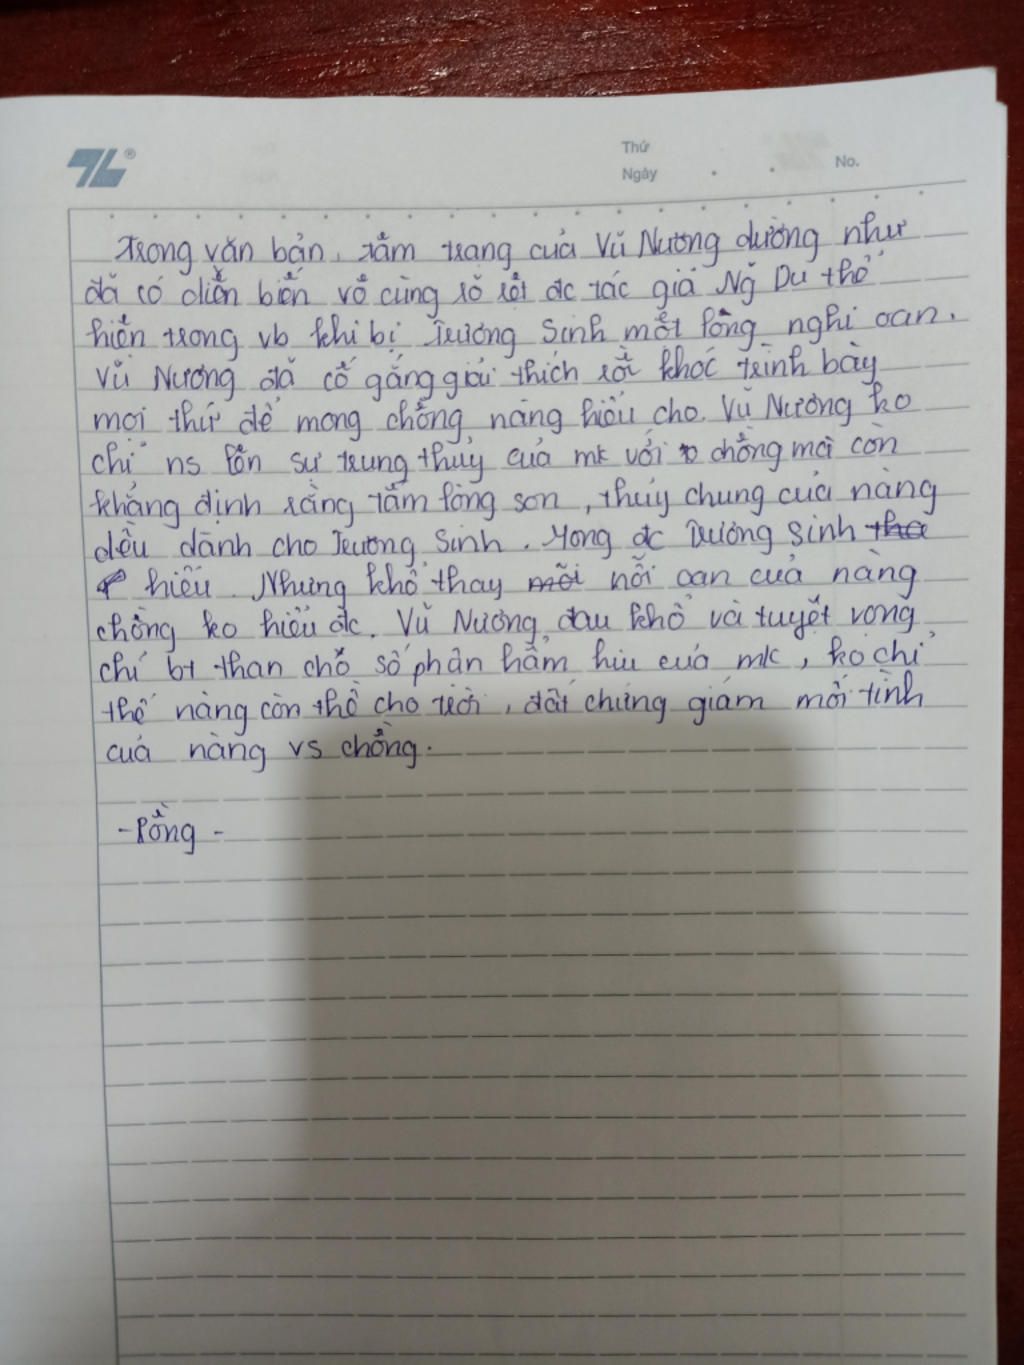 Thứ
Ngày
No.
Trong văn bản, tâm trạng của Vũ Nương dường như
đã có diễn biến vô cùng rõ rệt đc tác giả Ng Du thể
hiện trong vb khi bị Trương Sinh một lòng nghi oan.
Vũ Nương đã cố gắng giải thích rồi khóc trình bày
mọi thứ để mong chồng nàng hiểu cho. Vũ Nương ko
chỉ ns lên sự trung thủy của mk với chồng mà còn
khẳng định rằng tấm lòng son, thủy chung của nàng
đều dành cho Trương Sinh. Mong đc Trương Sinh
hiểu. Nhưng khổ thay nỗi oan của nàng
chồng ko hiểu đc. Vũ Nương đau khổ và tuyệt vọng
chỉ bt than cho số phận hẩm hiu của mk, ko chỉ
thế nàng còn thề cho trời, đất chứng giám mối tình
của nàng vs chồng.
- Rồng -